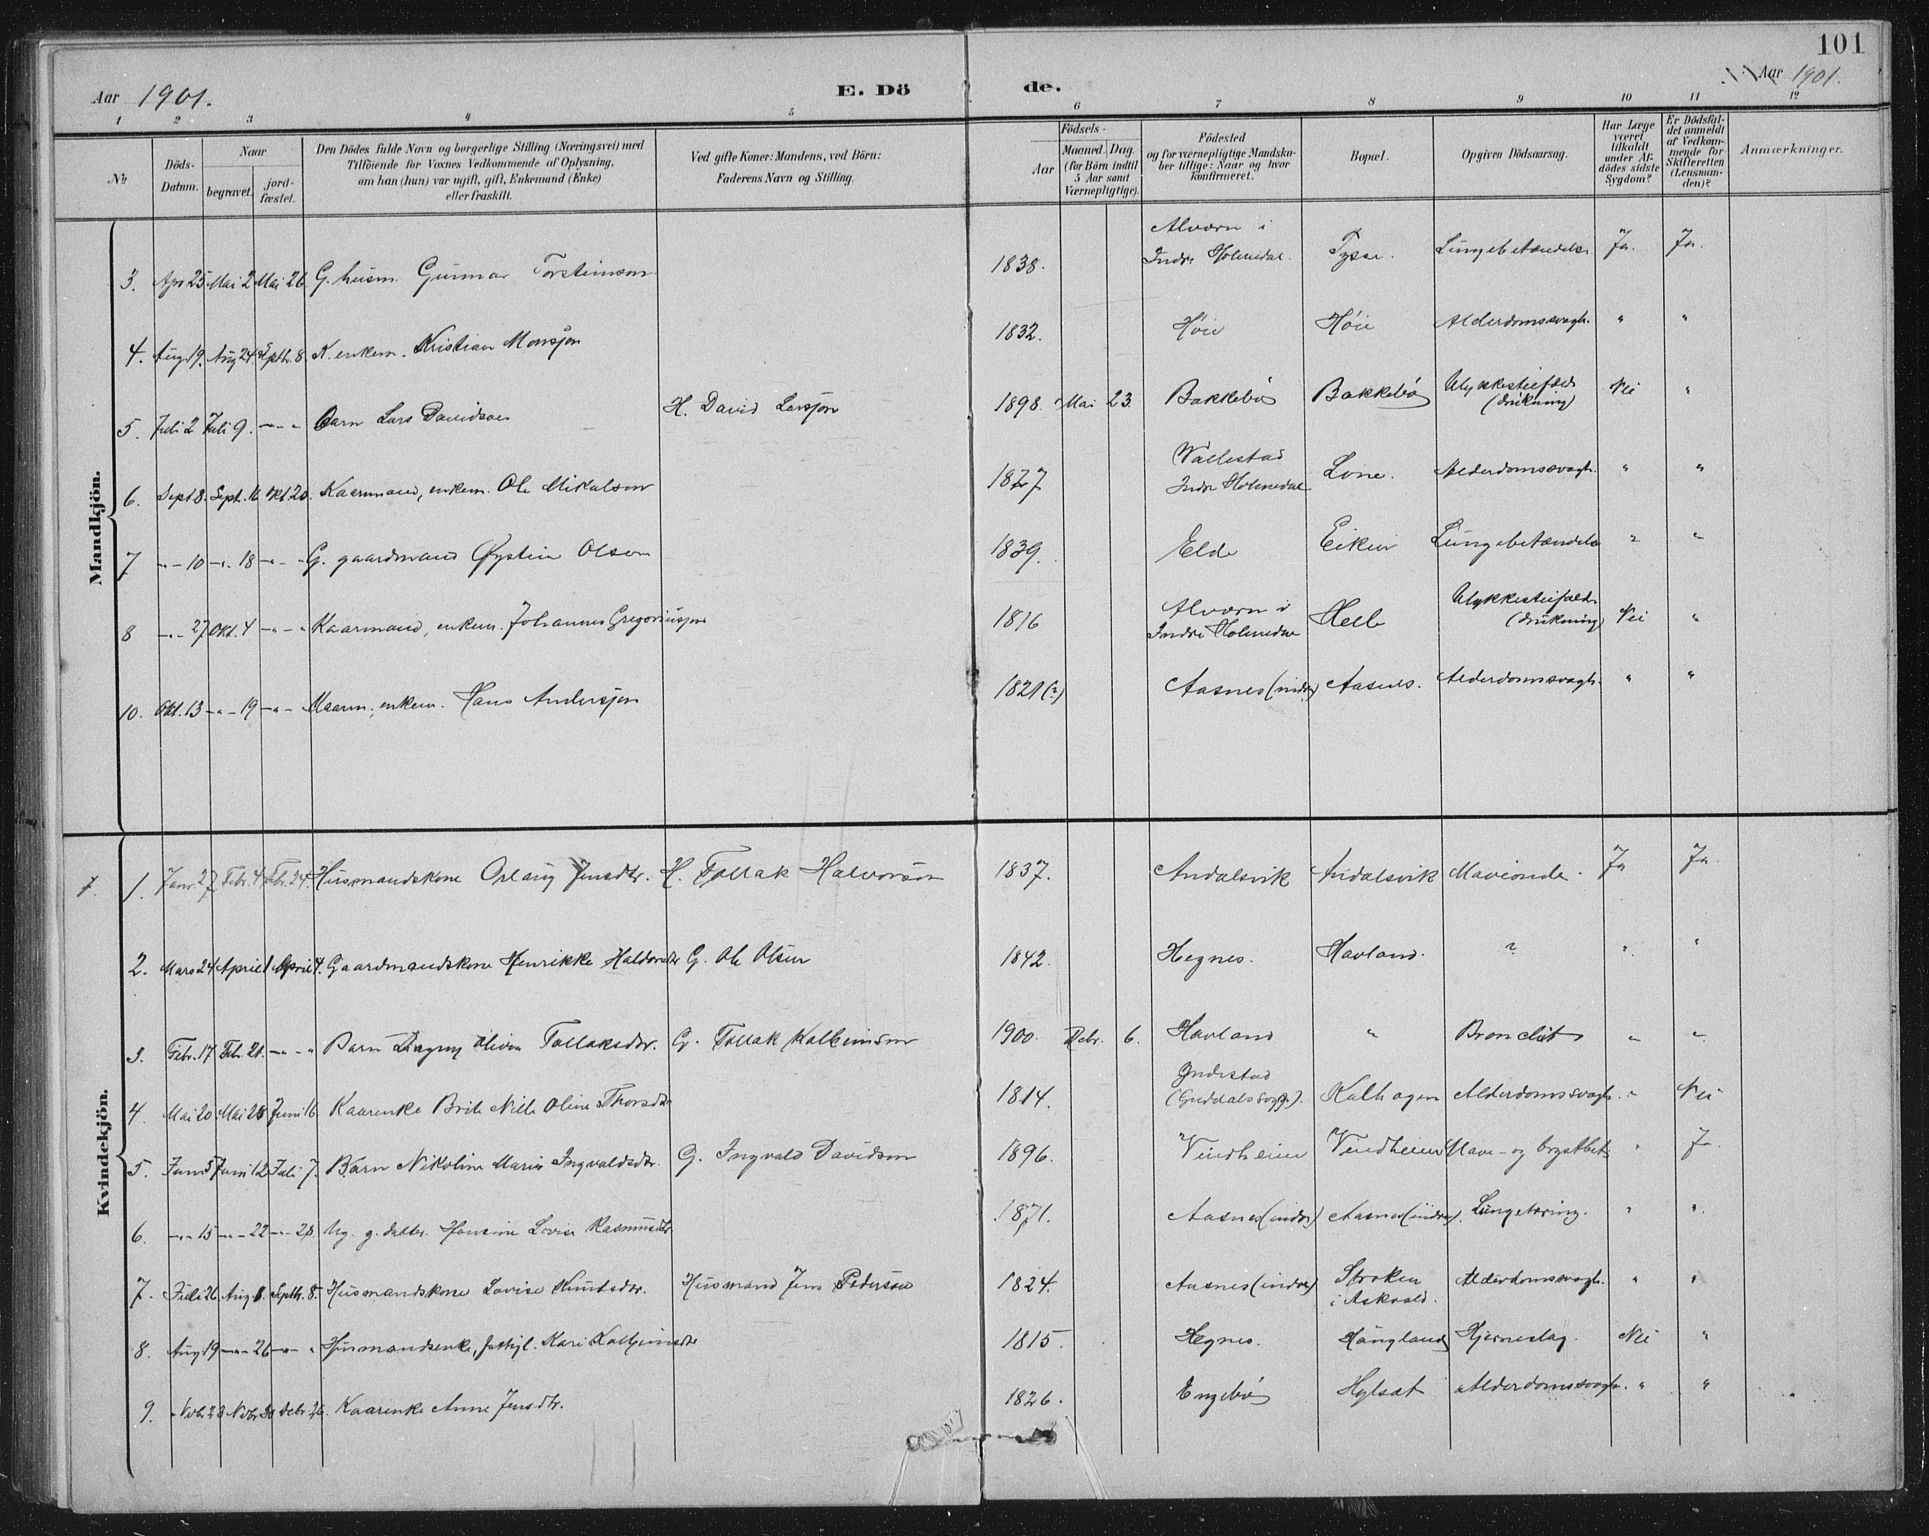 101
Aar 1901. E. Dö de. Aar 1901.
1 2 3 4 5 6 7 8 9 10 11 12
No
Döds-Datum.
Naar
begravet. jord-fæstet.
Den Dödes fulde Navn og borgerlige Stilling (Næringsvei) med
Tilföiende for Voxnes Vedkommende af Oplysning,
om han (hun) var ugift, gift, Enkemand (Enke)
eller fraskilt.
Ved gifte Koner: Mandens, ved Börn:
Faderens Navn og Stilling.
Födsels-
Aar
Maaned. Dag.
(for Börn indtil
5 Aar samt
Værnepligtige).
Födested
og for værnepligtige Mandska-
ber tillige: Naar og hvor
konfirmeret.
Bopæl.
Opgiven Dödsaarsag.
Har Læge
været
tilkaldt
under Af-
dödes sidste
Sygdom?
Er Dödsfal-
det anmeldt
af Vedkom-
mende for
Skifteretten
(Lensman-
den)?
Anmærkninger.
Mandkjön.
3. Apr 25 Mai 2 Mai 26. G. husm. Gunnar Torsteinson 1838. Alværn i Indre Holmedal. Tysse. Lungebetændelse Ja. Ja.
4. Aug. 19. Aug 24. Septbr. 8. K. enkem. Kristian Monsson 1832. Høie Høie Alderdomssvagh. " "
5. Juli 2 Juli 9. -"- " Barn Lars Davidson H. David Larsson 1898. Mai 23. Bakkebø Bakkebø Ulykkestilfælde (drukning) Nei "
6. Sept 8. Sept. 16. Okt. 20. Kaarmand, enkem. Ole Mikalson 1827 Vallestad Indre Holmedal Lone. Alderdomssvagh. " "
7 -"- 10 -"- 18 -"- " G. gaardmand Øystein Olson 1839. Elde Eiken Lungebetændelse " "
8 -"- 27 Okt. 4 -"- " Kaarmand, enkem. Johannes Gregoriusson 1816 Alværn i Indre Holmedal Helle Ulykkestilfælde (drukning) Nei "
10. Okt. 13 -"- 19 -"- Kaarm., enkem. Hans Andersson 1821 (?) Aasnes (indre) Aasnes. Alderdomssvagh. " "
Kvindekjön.
1. Janr. 27 Febr. 4 Febr. 24. Husmandskone Oplaug Jensdtr. H. Tollak Halvorson 1837. Andalsvik Andalsvik Mavionde. Ja Ja.
2. Mars 24 April 1 April 4. Gaardmandskone Henrikke Haldorsdtr G. Ole Olsen 1842. Hegnes. Havland. ? " "
3. Febr. 17 Febr. 21. -"- " Barn Dagny Olivia Tollaksdtr. G. Tollak Kolbeinson 1900. Debr. 6. Havland " Bronchit " "
4. Mai 20. Mai 28 Juni 16. Kaarenke Brite Nille Oline Thorsdtr 1814. Indrestad (Guddals sogn). Kalhagen Alderdomssvagh. " Nei
5. Juni 5 Juni 12 Juli 7. Barn Nikoline Marie Ingvaldsdtr. G. Ingvald Davidson 1896. Vindheim Vindheim Mave- og brystbet. " Ja
6. -"- 15 -"- 22 -"- 28 Ug. g. datter. Hansine Lovise Rasmusdtr 1871. Aasnes (indre) Aasnes (indre). Lungetæring. " "
7. Juli 26 Aug. 8. Septbr. 8. Husmandskone Lovise Knutsdtr. Husmand Jens Pedersen 1824. Aasnes (indre) Stroken i Askvold. Alderdomssvagh. " "
8. Aug 19 -"- 26 -"- " Husmandsenke, fattigl. Kari Kolbeinsdtr 1815. Hegnes. Haugland Hjerneslag. Nei "
9. Novbr. 23 Novbr 30 Debr. 26. Kaarenke Anne Jensdtr. 1826. Engebø Hylsæt Alderdomssvagh. " "